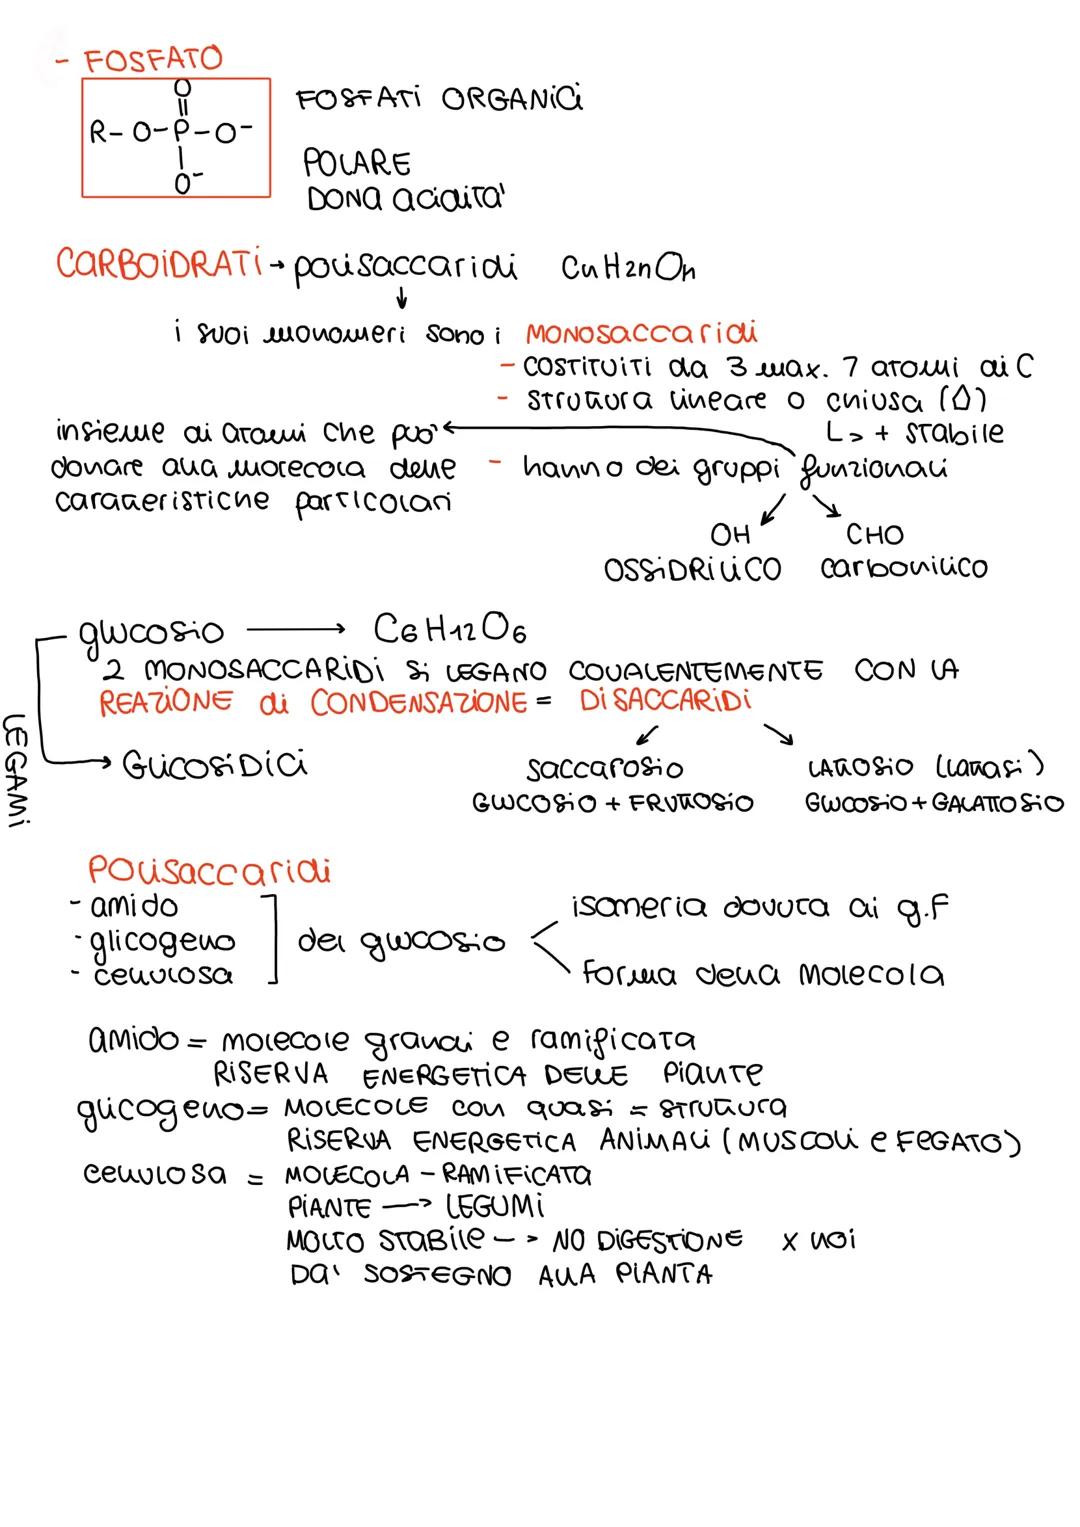 - FOSFATO
O
R-O-P-O-
O-
FOSFATI ORGANICI
POLARE
DONA acidità
CARBOIDRATI → polisaccaridi CnH2nOn
↓
i suoi monomeri sono i MONOSaccaridi
- COSTITUITI da 3 max. 7 atomi di C
- struttura lineare o chiusa (⬠)
L> + stabile
- hanno dei gruppi funzionali
insieme di atomi che può
donare alla molecola delle
caratteristiche particolari
OH CHO
OSSIDRILICO carbonilico
glucosio → C6H12O6
2 MONOSACCARIDI si LEGANO COVALENTEMENTE CON LA
REAZIONE di CONDENSAZIONE = DISACCARIDI
LEGAMI
→ GLICOSIDICI
saccarosio LATTOSIO (lattasi)
GLUCOSIO + FRUTTOSIO GLUCOSIO + GALATTOSIO
Polisaccaridi
- amido
- glicogeno
- cellulosa
del glucosio
isomeria dovuta ai g.F
Forma della Molecola
amido = molecole grandi e ramificata
RISERVA ENERGETICA DELLE Piante
glicogeno = MOLECOLE con quasi = STRUTTURA
RISERVA ENERGETICA ANIMALI (MUSCOLI e FEGATO)
cellulosa = MOLECOLA - RAMIFICATA
PIANTE → LEGUMI
MOLTO STABILE -> NO DIGESTIONE x noi
DA' SOSTEGNO ALLA PIANTA